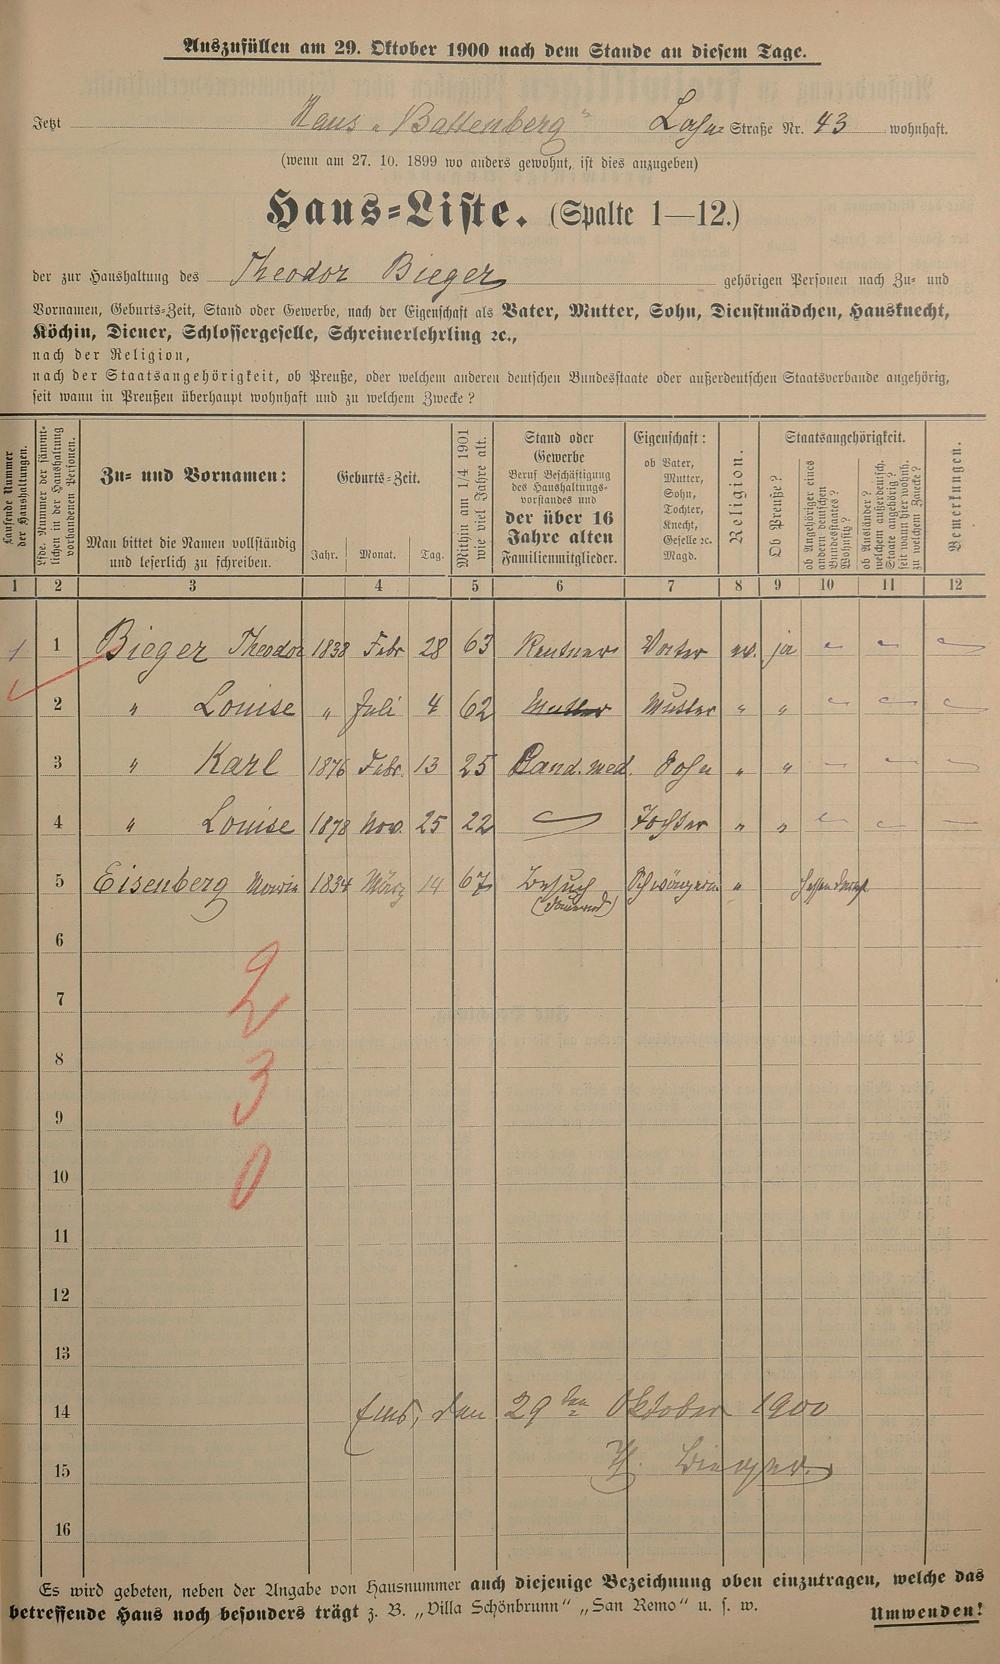 Auszufüllen am 29. Oktober 1900 nach dem Stande an diesem Tage.
Jetzt Haus „Battenberg" Lahn Straße Nr. 43 wohnhaft.
(wenn am 27. 10. 1899 wo anders gewohnt, ist dies anzugeben)
Haus-Liste. (Spalte 1—12.)
der zur Haushaltung des Theodor Bieger gehörigen Personen nach Zu- und
Vornamen, Geburts-Zeit, Stand oder Gewerbe, nach der Eigenschaft als Vater, Mutter, Sohn, Dienstmädchen, Hausknecht,
Köchin, Diener, Schlossergeselle, Schreinerlehrling ꝛc.,
nach der Religion,
nach der Staatsangehörigkeit, ob Preuße, oder welchem anderen deutschen Bundesstaate oder außerdeutschen Staatsverbande angehörig,
seit wann in Preußen überhaupt wohnhaft und zu welchem Zwecke?
Laufende Nummer der Haushaltungen.
Lfde. Nummer der sämmtlichen in der Haushaltung vorhandenen Personen.
Zu- und Vornamen:
Man bittet die Namen vollständig
und leserlich zu schreiben.
Geburts-Zeit.
Jahr. Monat. Tag.
Mithin am 1/4 1901 wie viel Jahre alt.
Stand oder
Gewerbe
Beruf Beschäftigung
des Haushaltungs-
vorstandes und
der über 16
Jahre alten
Familienmitglieder.
Eigenschaft:
ob Vater,
Mutter,
Sohn,
Tochter,
Knecht,
Geselle ꝛc.
Magd.
Religion.
Staatsangehörigkeit.
Ob Preuße?
ob Angehöriger eines andern deutschen Bundesstaates? Wohnsitz?
ob Ausländer? welchem außerdeutsch. Staate angehörig? seit wann hier wohnh. zu welchem Zwecke?
Bemerkungen.
1 2 3 4 5 6 7 8 9 10 11 12
1 1 Bieger Theodor 1838 Febr 28 63 Rentner Vater ev. ja
2 " Louise " Juli 4 62 Mutter Mutter " "
3 " Karl 1876 Febr. 13 25 Cand. med. Sohn " "
4 " Louise 1878 Nov. 25 22 Tochter " "
5 Eisenberg Maria 1834 März 14 67 Besuch (dauernd) Schwägerin "
6
7
8
9
10
11
12
13
2
3
0
14 Ems, den 29ten Oktober 1900
15 Th. Bieger
16
Es wird gebeten, neben der Angabe von Hausnummer auch diejenige Bezeichnung oben einzutragen, welche das
betreffende Haus noch besonders trägt z. B. „Villa Schönbrunn" „San Remo" u. s. w. Umwenden!